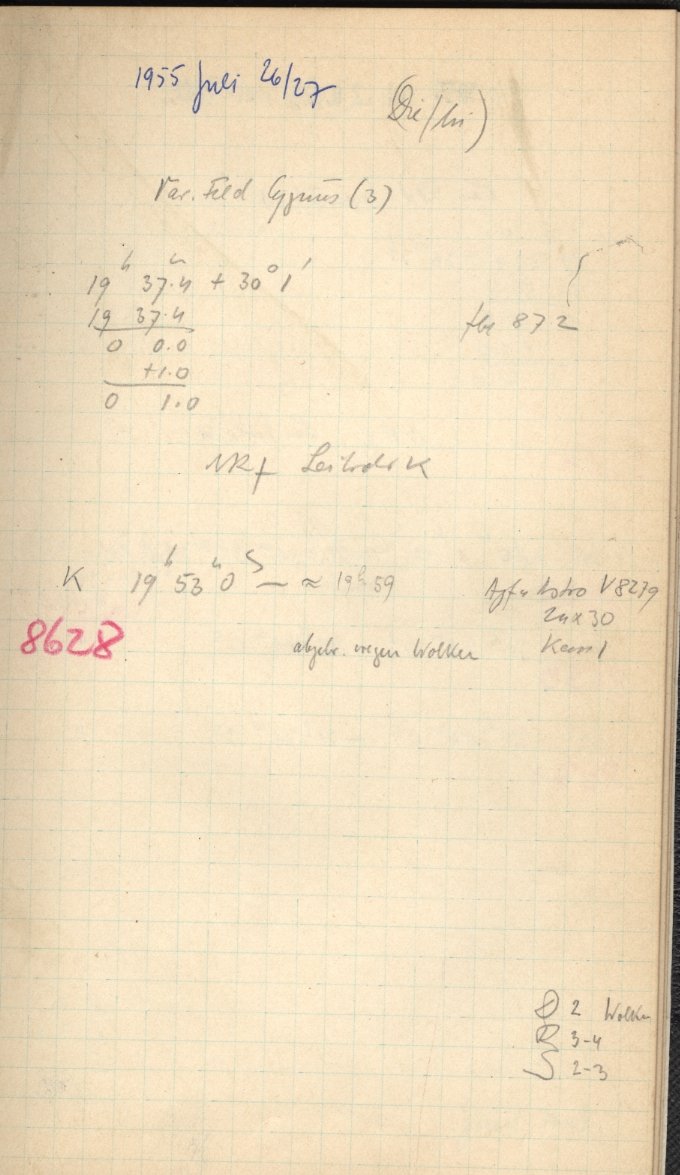 1955 Juli 26/27
(Die/hi)
Var. Feld Cygnus (3)
19ʰ 37ᵐ.4 + 30° 1'
19 37.4
0 0.0
+1.0
0 1.0
fbr 872
K 19ʰ 53ᵐ 0ˢ — ≈ 19ʰ 59
8628
abgebr. wegen Wolken
Agfa Astro V8279
24x30
Kass 1
D 2 Wolken
R 3-4
S 2-3